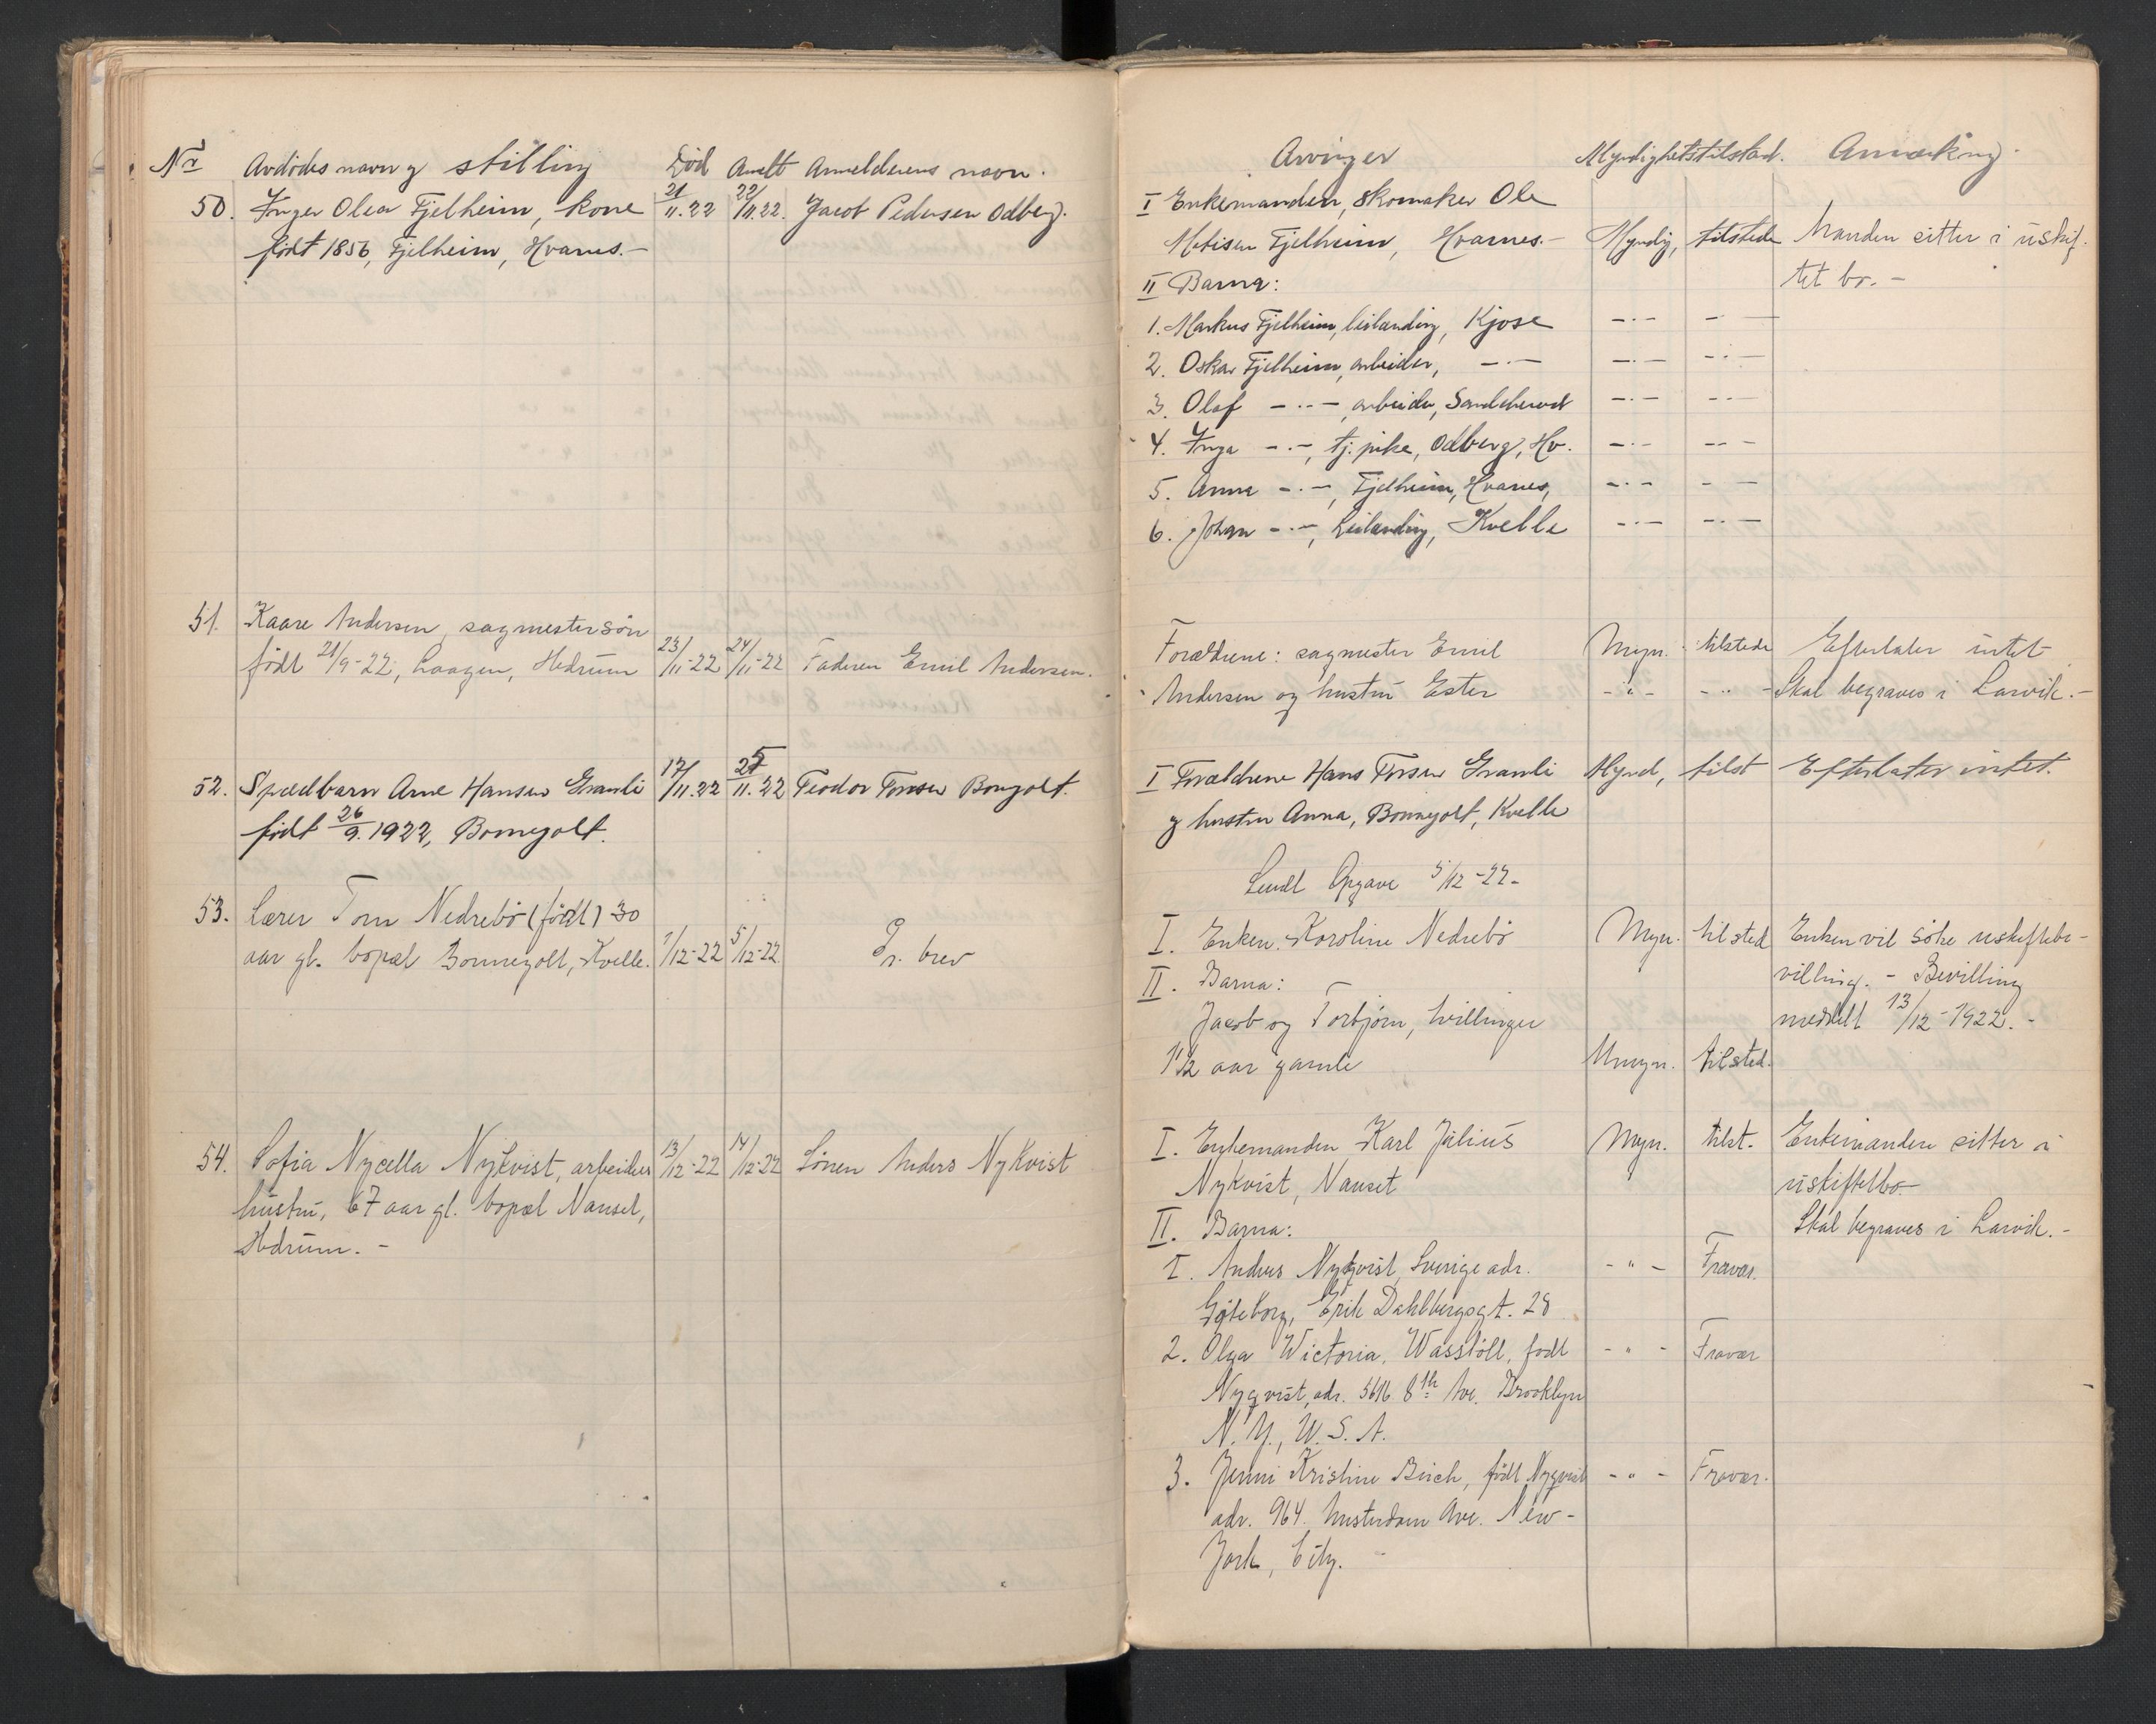 Nr Avdødes navn og stilling Død Anmeldt Anmelderens navn.
50. Inger Olea Fjelheim, kone 21/11.22 22/11.22. Jacob Pedersen Odberg.
født 1856, Fjelheim, Hvarnes.-
51. Kaare Andersen, sagmestersøn
født 21/9-22, Laagen, Hedrum 23/11-22 24/11-22 Faderen Emil Andersen.
52. Spædbarn Arne Hansen Granli 17/11.22 25/11.22 Teodor Torsen Bongolt.
født 26/9.1922, Bonnegolt.
53. Lærer Tom Nedrebö (født) 30
aar gl. bopæl Bonnegolt, Kvelle. 1/12-22 5/12-22 Pr. brev
54. Sofia Nycella Nykvist, arbeider 13/12-22 14/12-22 Sönen Anders Nykvist
hustru, 67 aar gl. bopæl Nanset,
Hedrum. -
Arvinger Myndighetstilstand. Anmerkning.
I Enkemanden, skomaker Ole
Fjelheim, Hvarnes.- Myndig, tilstede Manden sitter i uskif-
II Barna: tet bo. -
1. Markus Fjelheim, leilending, Kjose -.- -.-
2. Oskar Fjelheim, arbeider, -.- -.- -.-
3. Olaf -..-, arbeider, Sandeherred -.- -.-
4. Inga -.-, tj. pike, Odberg, Hv. -.- -.-
5. Anna -.-, Fjelheim, Hvarnes, -.- - -
6. Johan -.-, Leilending, Kvelle -.- -.-
Forældrene: sagmester Emil Myn. tilstede Efterlater intet
Andersen og hustru Ester -"- -"- Skal begraves i Larvik.-
I Forældrene Hans Torsen Granli Mynd, tilst Efterlater intet.
og hustru Anna, Bonnegolt, Kvelle
Sendt Opgave 5/12-22-
I. Enken Karoline Nedrebö Myn. tilsted Enken vil söke uskiftebe-
II. Barna: villing. - Bevilling
Jacob og Torbjörn, tvillinger meddelt 13/12-1922.-
1 1/2 aar gamle Umyn. tilsted.
I. Enkemanden Karl Julius Myn. tilst. Enkemanden sitter i
Nykvist, Nanset uskiftetbo-
II. Barna: Skal begraves i Larvik.-
1. Anders Nykvist, Sverige adr. -"- Fravær.
Göteborg, Erik Dahlbergsgt. 28
2. Olga Wictoria, Wasstöll, född -"- Fravær
Nyqvist, adr. 5616 8th Ave. Brooklyn
N. Y., U. S. A.
3. Jenni Kristine Birch, född Nyqvist -"- Fravær.
adr. 964. Amsterdam Ave. New-
York, City. -